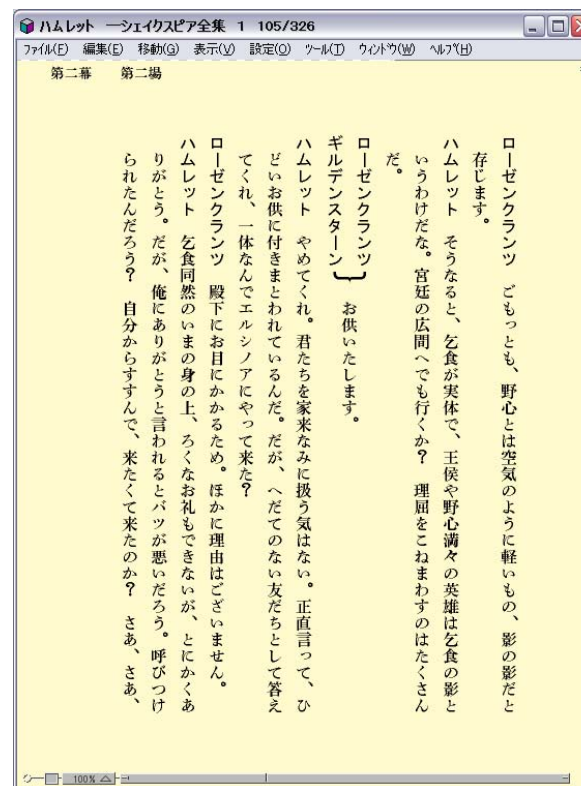 ハムレット ―シェイクスピア全集 1 105/326
ファイル(F) 編集(E) 移動(G) 表示(V) 設定(O) ツール(T) ウィンドウ(W) ヘルプ(H)
第二幕 第二場
ローゼンクランツ ごもっとも、野心とは空気のように軽いもの、影の影だと
存じます。
ハムレット そうなると、乞食が実体で、王侯や野心満々の英雄は乞食の影と
いうわけだな。宮廷の広間へでも行くか? 理屈をこねまわすのはたくさん
だ。
ローゼンクランツ
ギルデンスターン お供いたします。
ハムレット やめてくれ。君たちを家来なみに扱う気はない。正直言って、ひ
どいお供に付きまとわれているんだ。だが、へだてのない友だちとして答え
てくれ、一体なんでエルシノアにやって来た?
ローゼンクランツ 殿下にお目にかかるため。ほかに理由はございません。
ハムレット 乞食同然のいまの身の上、ろくなお礼もできないが、とにかくあ
りがとう。だが、俺にありがとうと言われるとバツが悪いだろう。呼びつけ
られたんだろう? 自分からすすんで、来たくて来たのか? さあ、さあ、
100%